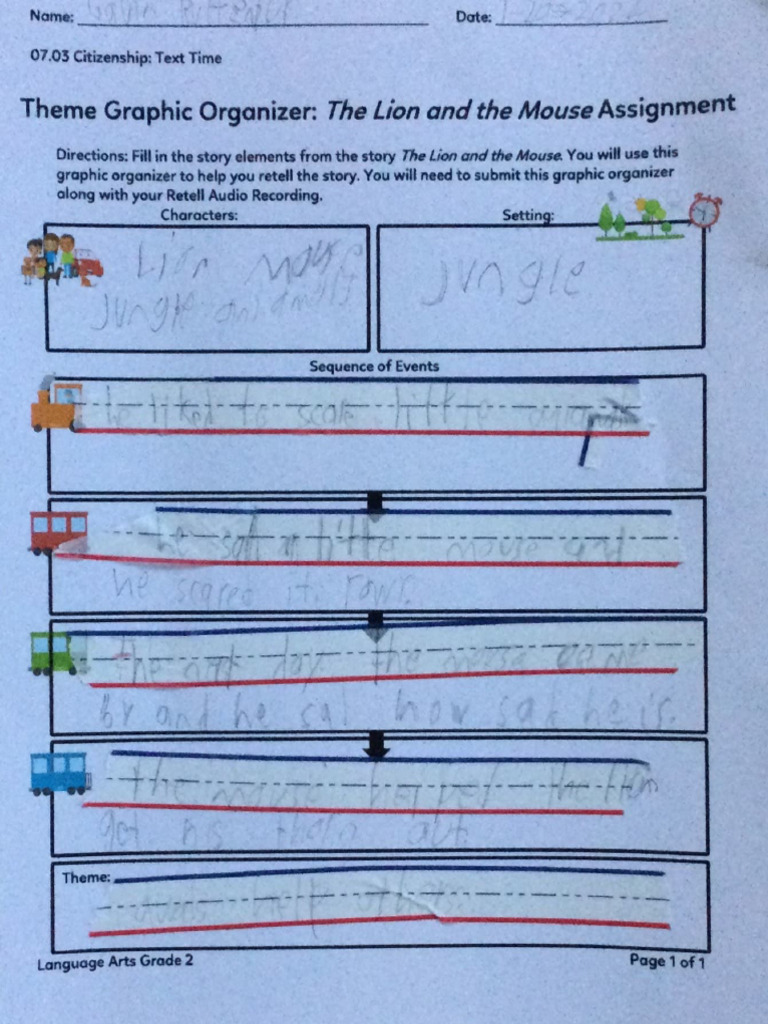 Name: Gavin
Date:
07.03 Citizenship: Text Time
Theme Graphic Organizer: The Lion and the Mouse Assignment
Directions: Fill in the story elements from the story The Lion and the Mouse. You will use this
graphic organizer to help you retell the story. You will need to submit this graphic organizer
along with your Retell Audio Recording.
Characters:
Lion Mouse
Jungle
Setting:
Jungle
Sequence of Events
He liked to scare
he a little mouse and
he scared it.
The day the
and he how sad he is.
the the
got his out.
Theme:
help others.
Language Arts Grade 2
Page 1 of 1